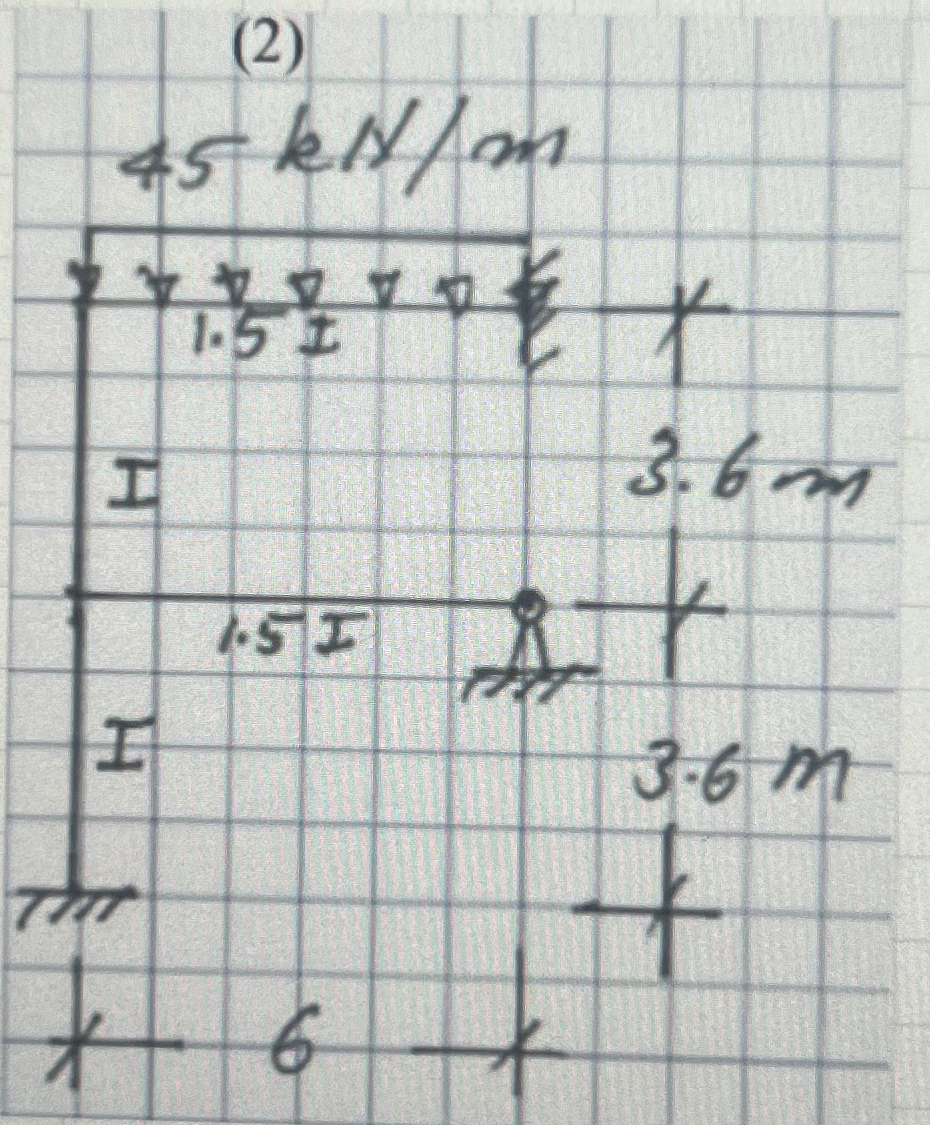 (2)
45 kN/m
1.5 I
I
3.6 m
1.5 I
I
3.6 m
6